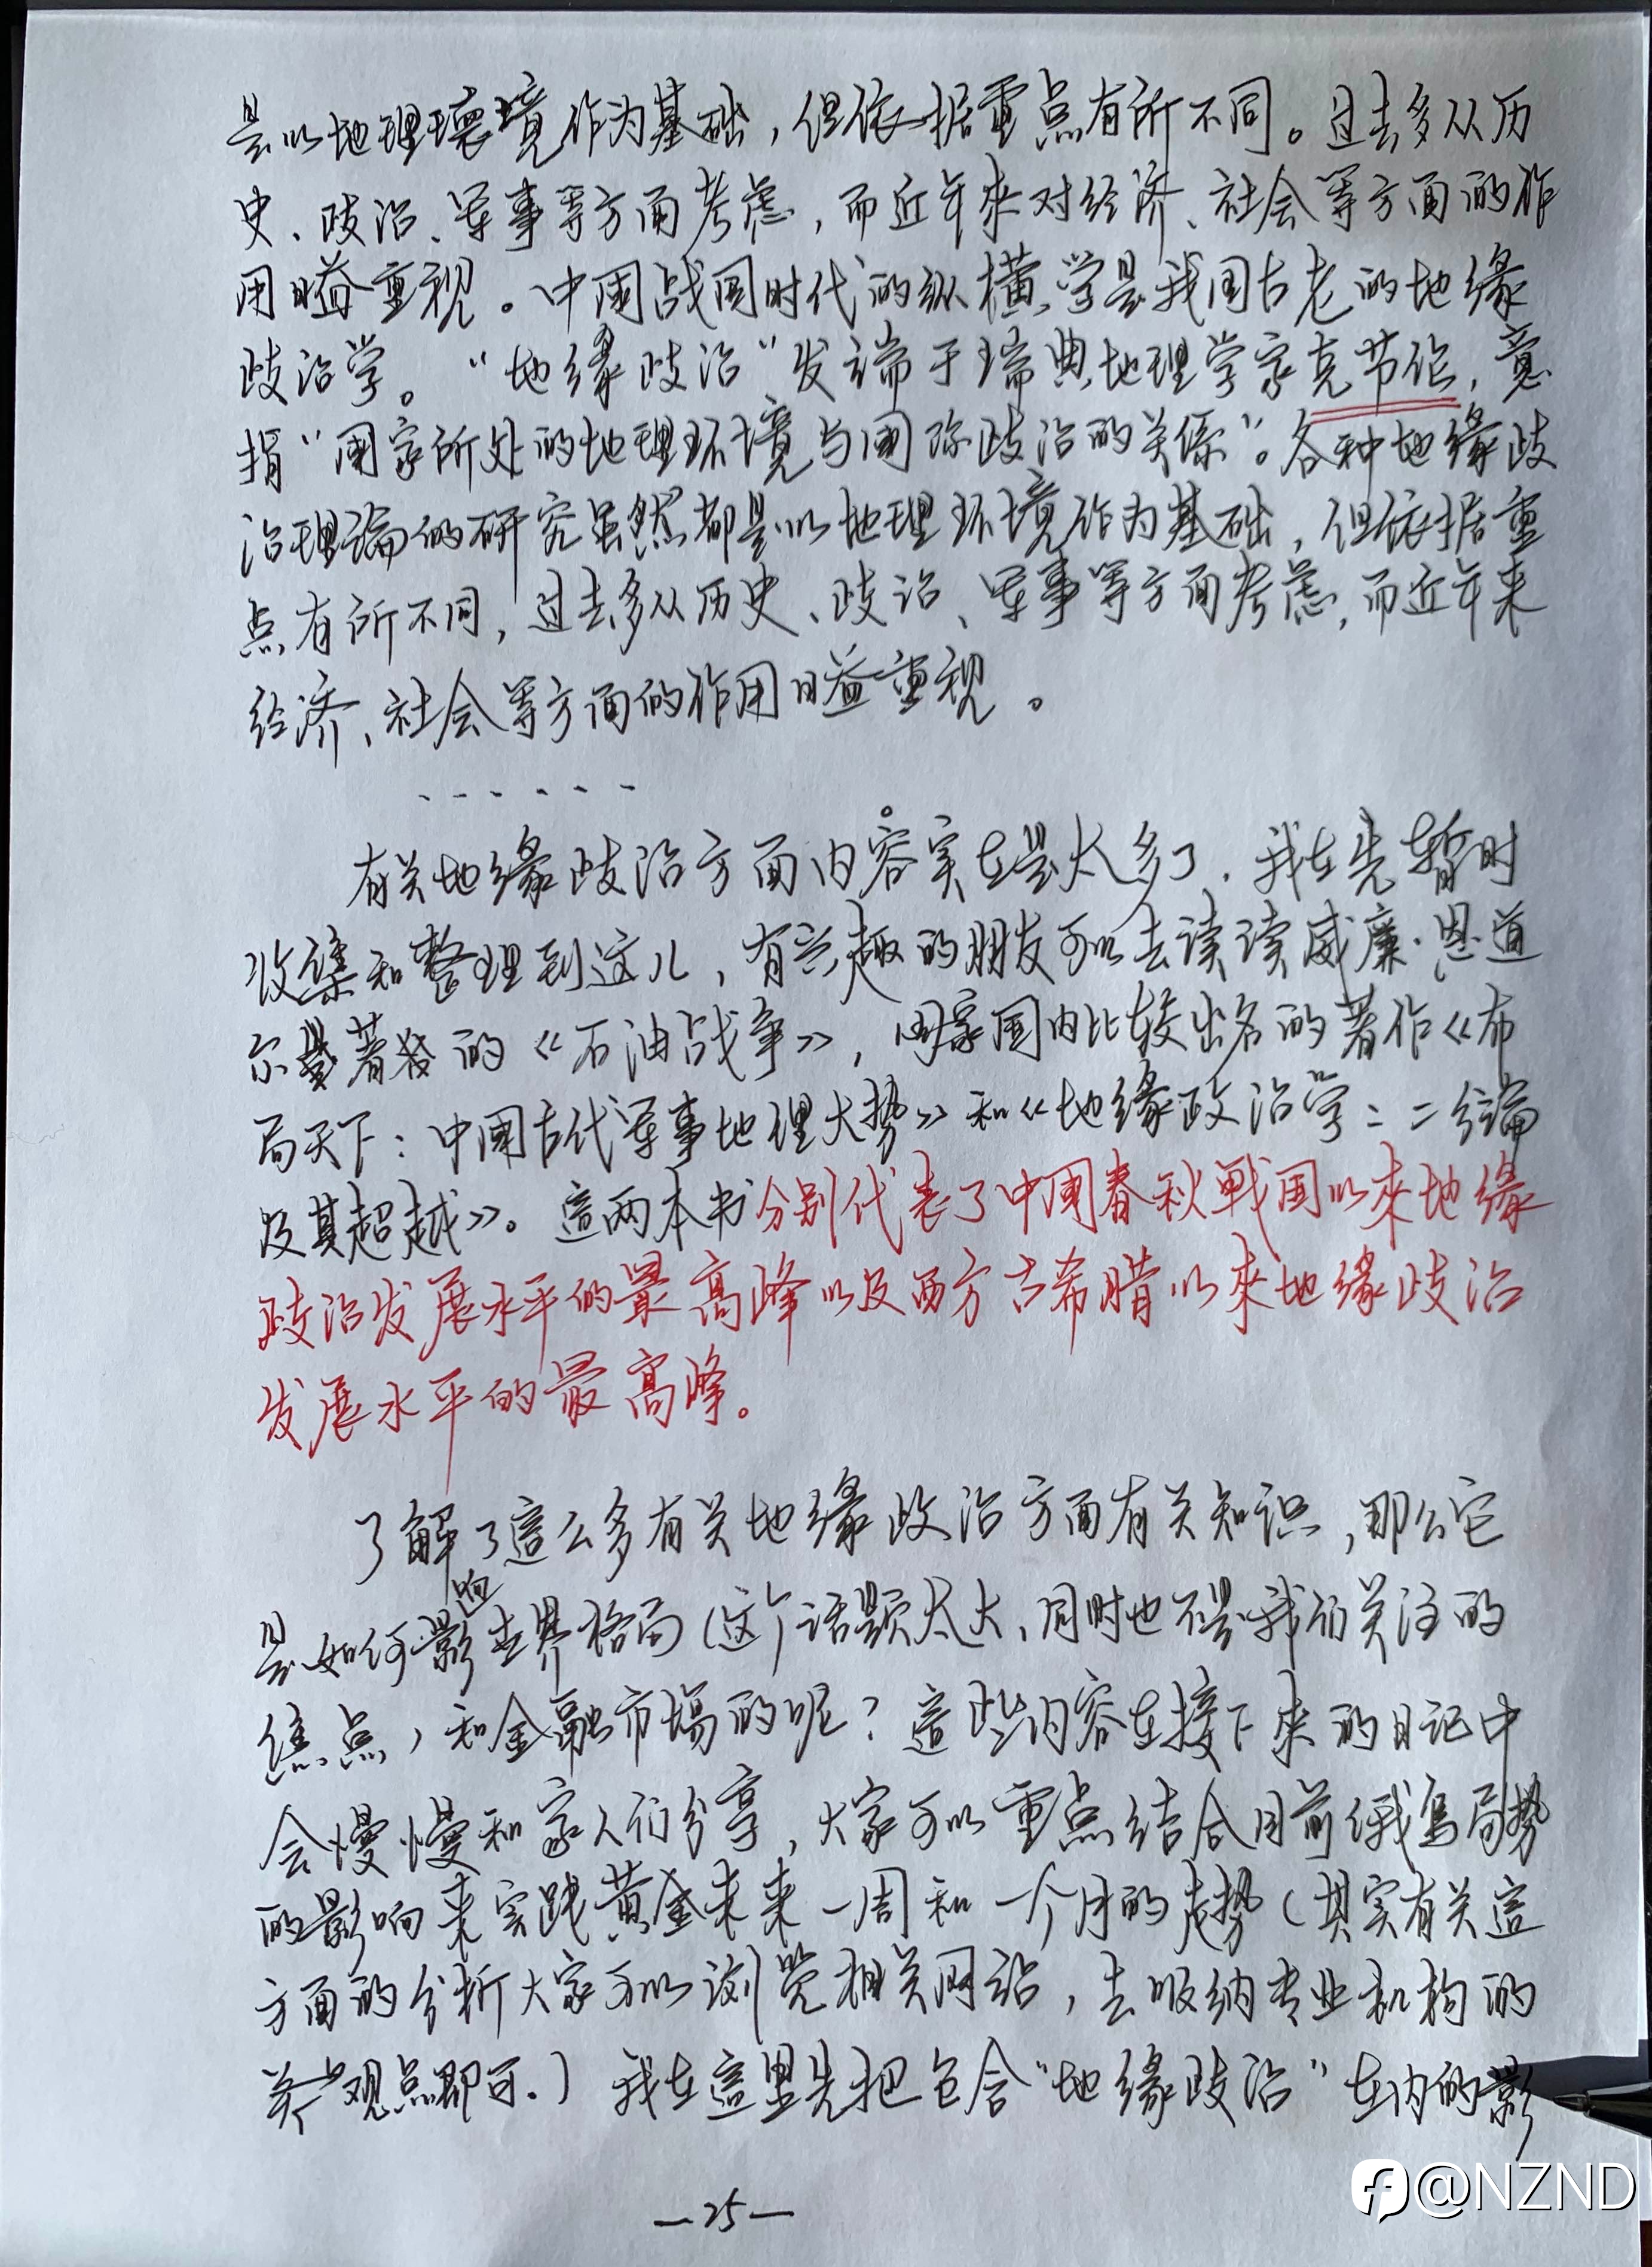 是以地理環境作为基础，但依据重点有所不同。过去多从历
史、政治、军事等方面考虑，而近年来对经济、社会等方面的作
用日益重视。中国战国时代的纵横学是我国古老的地缘
政治学。“地缘政治”发端于瑞典地理学家克节伦，意
指“国家所处的地理环境与国际政治的关係”。各种地缘政
治理論的研究虽然都是以地理环境作为基础，但依据重
点有所不同，过去多从历史、政治、军事等方面考虑，而近年来
经济、社会等方面的作用日益重视。
......
有关地缘政治方面内容实在是太多了。我在先暂时
收集和整理到这儿，有兴趣的朋友可以去读读威廉·恩道
尔著的《石油战争》，国内比较出名的著作《布
局天下：中国古代军事地理大势》和《地缘政治学：二分論
及其超越》。這两本书分别代表了中国春秋戰国以來地缘
政治发展水平的最高峰以及西方古希腊以來地缘政治
发展水平的最高峰。
了解了這么多有关地缘政治方面有关知识，那么它
是如何影响世界格局（这个话题太大，同时也不是我们关注的
焦点）和金融市場的呢？這些内容在接下来的日记中
会慢慢和家人们分享，大家可以重点结合目前俄烏局势
的影响来实践黄金未来一周和一个月的走势（其实有关這
方面的分析大家可以浏览相关网站，去吸纳专业机构的
观点即可。）我在這里先把包含“地缘政治”在内的影
—25—
@NZND